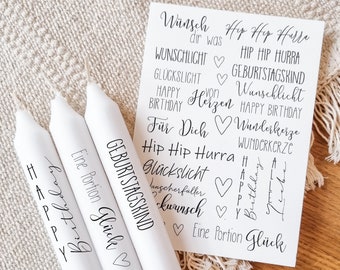 Wünsch
dir was
Hip Hip Hurra
WUNSCHLICHT
HIP HIP HURRA
GLÜCKSLICHT
GEBURTSTAGSKIND
HAPPY
BIRTHDAY
von
Herzen
Wunschlicht
HAPPY BIRTHDAY
Für Dich
Wunderkerze
WUNDERKERZE
Hip Hip Hurra
Glückslicht
HAPPY
Birthday
Alles
Liebe
Eine Portion Glück
HAPPY
Birthday
Eine Portion
Glück
GEBURTSTAGSKIND